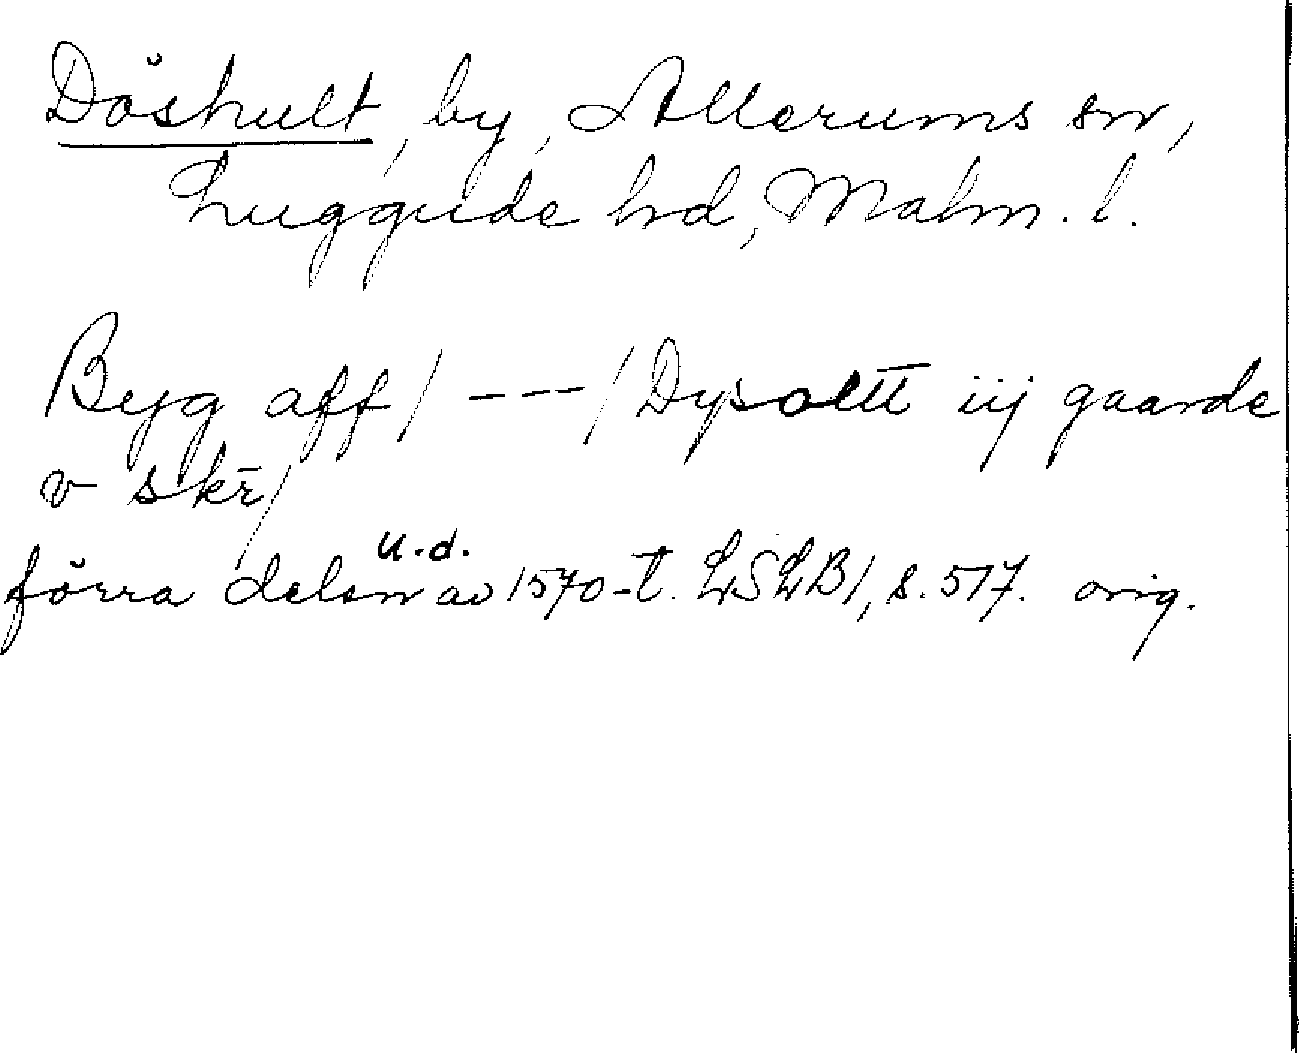 Döshult, by, Allerums sn,
Luggude hd, Malm. l.
Byg aff / --- / Dysoltt iij gaarde
v skr̄ /
u.d.
förra delen av 1570-t. LSLB 1, s. 517. orig.